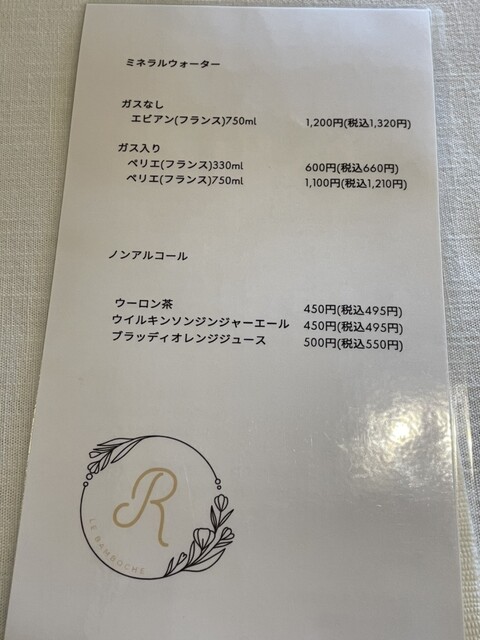 ミネラルウォーター
ガスなし
エビアン(フランス)750ml 1,200円(税込1,320円)
ガス入り
ペリエ(フランス)330ml 600円(税込660円)
ペリエ(フランス)750ml 1,100円(税込1,210円)
ノンアルコール
ウーロン茶 450円(税込495円)
ウイルキンソンジンジャーエール 450円(税込495円)
ブラッディオレンジジュース 500円(税込550円)
R
LE BAMBOCHE